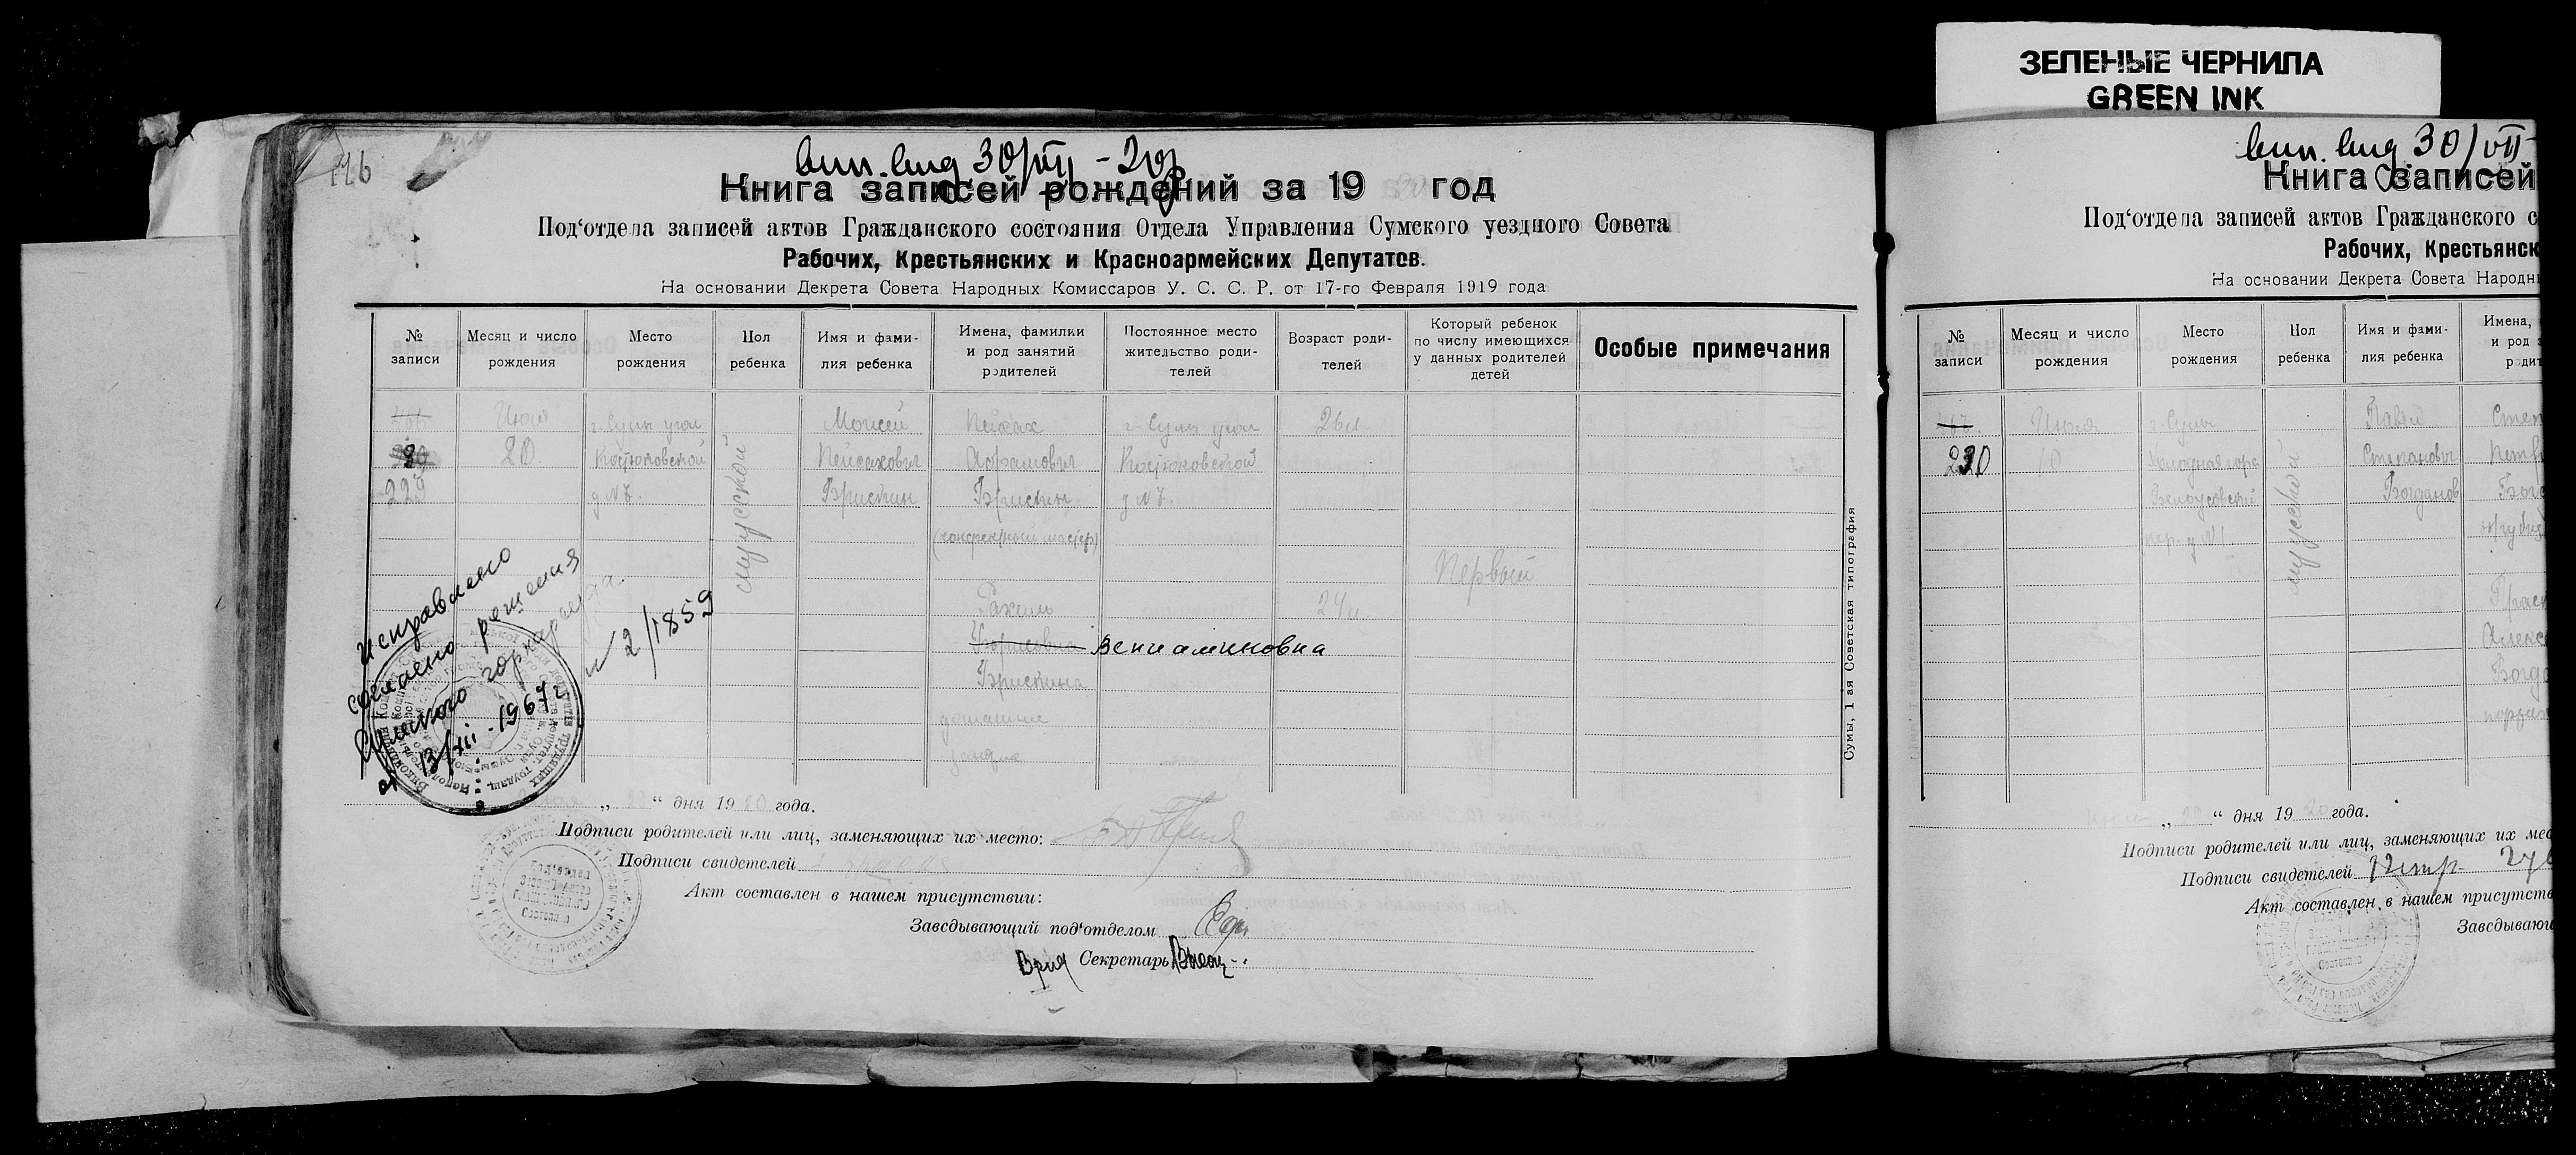 ЗЕЛЕНЫЕ ЧЕРНИЛА
GREEN INK
116
30/VII - 20
Книга записей рождений за 19 год
Под‘отдела записей актов Гражданского состояния Отдела Управления Сумского уездного Совета
Рабочих, Крестьянских и Красноармейских Депутатов.
На основании Декрета Совета Народных Комиссаров У. С. С. Р. от 17-го Февраля 1919 года
№ записи
Месяц и число рождения
Место рождения
Пол ребенка
Имя и фами-
лия ребенка
Имена, фамилки
и род занятий
родителей
Постоянное место
жительство роди-
телей
Возраст роди-
телей
Который ребенок
по числу имеющихся
у данных родителей
детей
Особые примечания
Июля г. Сумы угол Моисей Пейсах г. Сумы угол 26 л
20 Костюковской Пейсахович Абрамович Костюковской
229 д № 7. Брискин Брискин д № 7.
мужской
Первый
Рахиль 24 л
Борисовна Вениаминовна
Брискина
домашние
Исправлено
согласно решения
Сумского горнарсуда
от 13/XII - 1967 г
№ 2/1859
Сумы, 1 ая Советская типография
„ 20 “ дня 19 20 года.
Подписи родителей или лиц, заменяющих их место:
Подписи свидетелей
Акт составлен в нашем присутствии:
Заведывающий под‘отделом
Врид Секретарь
30/VII-
Книга записей
Под‘отдела записей актов Гражданского с
Рабочих, Крестьянск
На основании Декрета Совета Народн
№ записи
Месяц и число рождения
Место рождения
Пол ребенка
Имя и фами-
лия ребенка
Имена,
и род з
родит
Июля г. Сумы Павел Степ
230 10 Холодная гора Степанович Петр
Белоусовский Богданов Богд
пер. д № 1.
мужской
Прас
Алекс
Богд
Июля „ 20 “ дня 19 20 года.
Подписи родителей или лиц, заменяющих их мес
Подписи свидетелей
Акт составлен в нашем присутств
Заведывающ